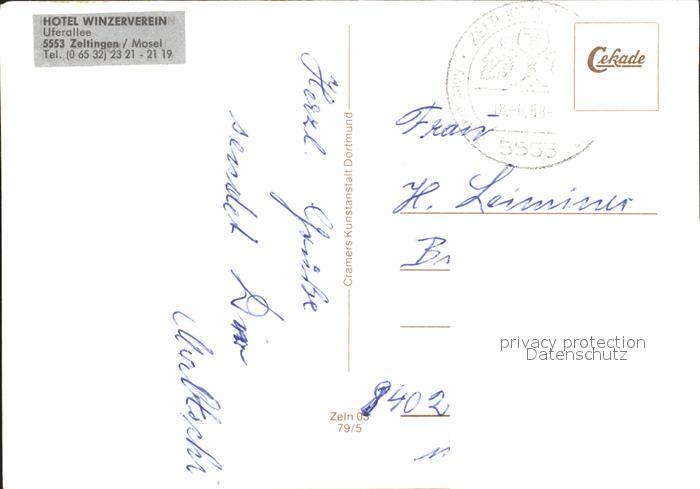 HOTEL WINZERVEREIN
Uferallee
5553 Zeltingen / Mosel
Tel. (0 65 32) 23 21 - 21 19
Herzl. Grüße
sendet Dir
Cramers Kunstanstalt Dortmund
Zeln 03
79/5
5553
Cekade
Frau
H.
8402
privacy protection
Datenschutz